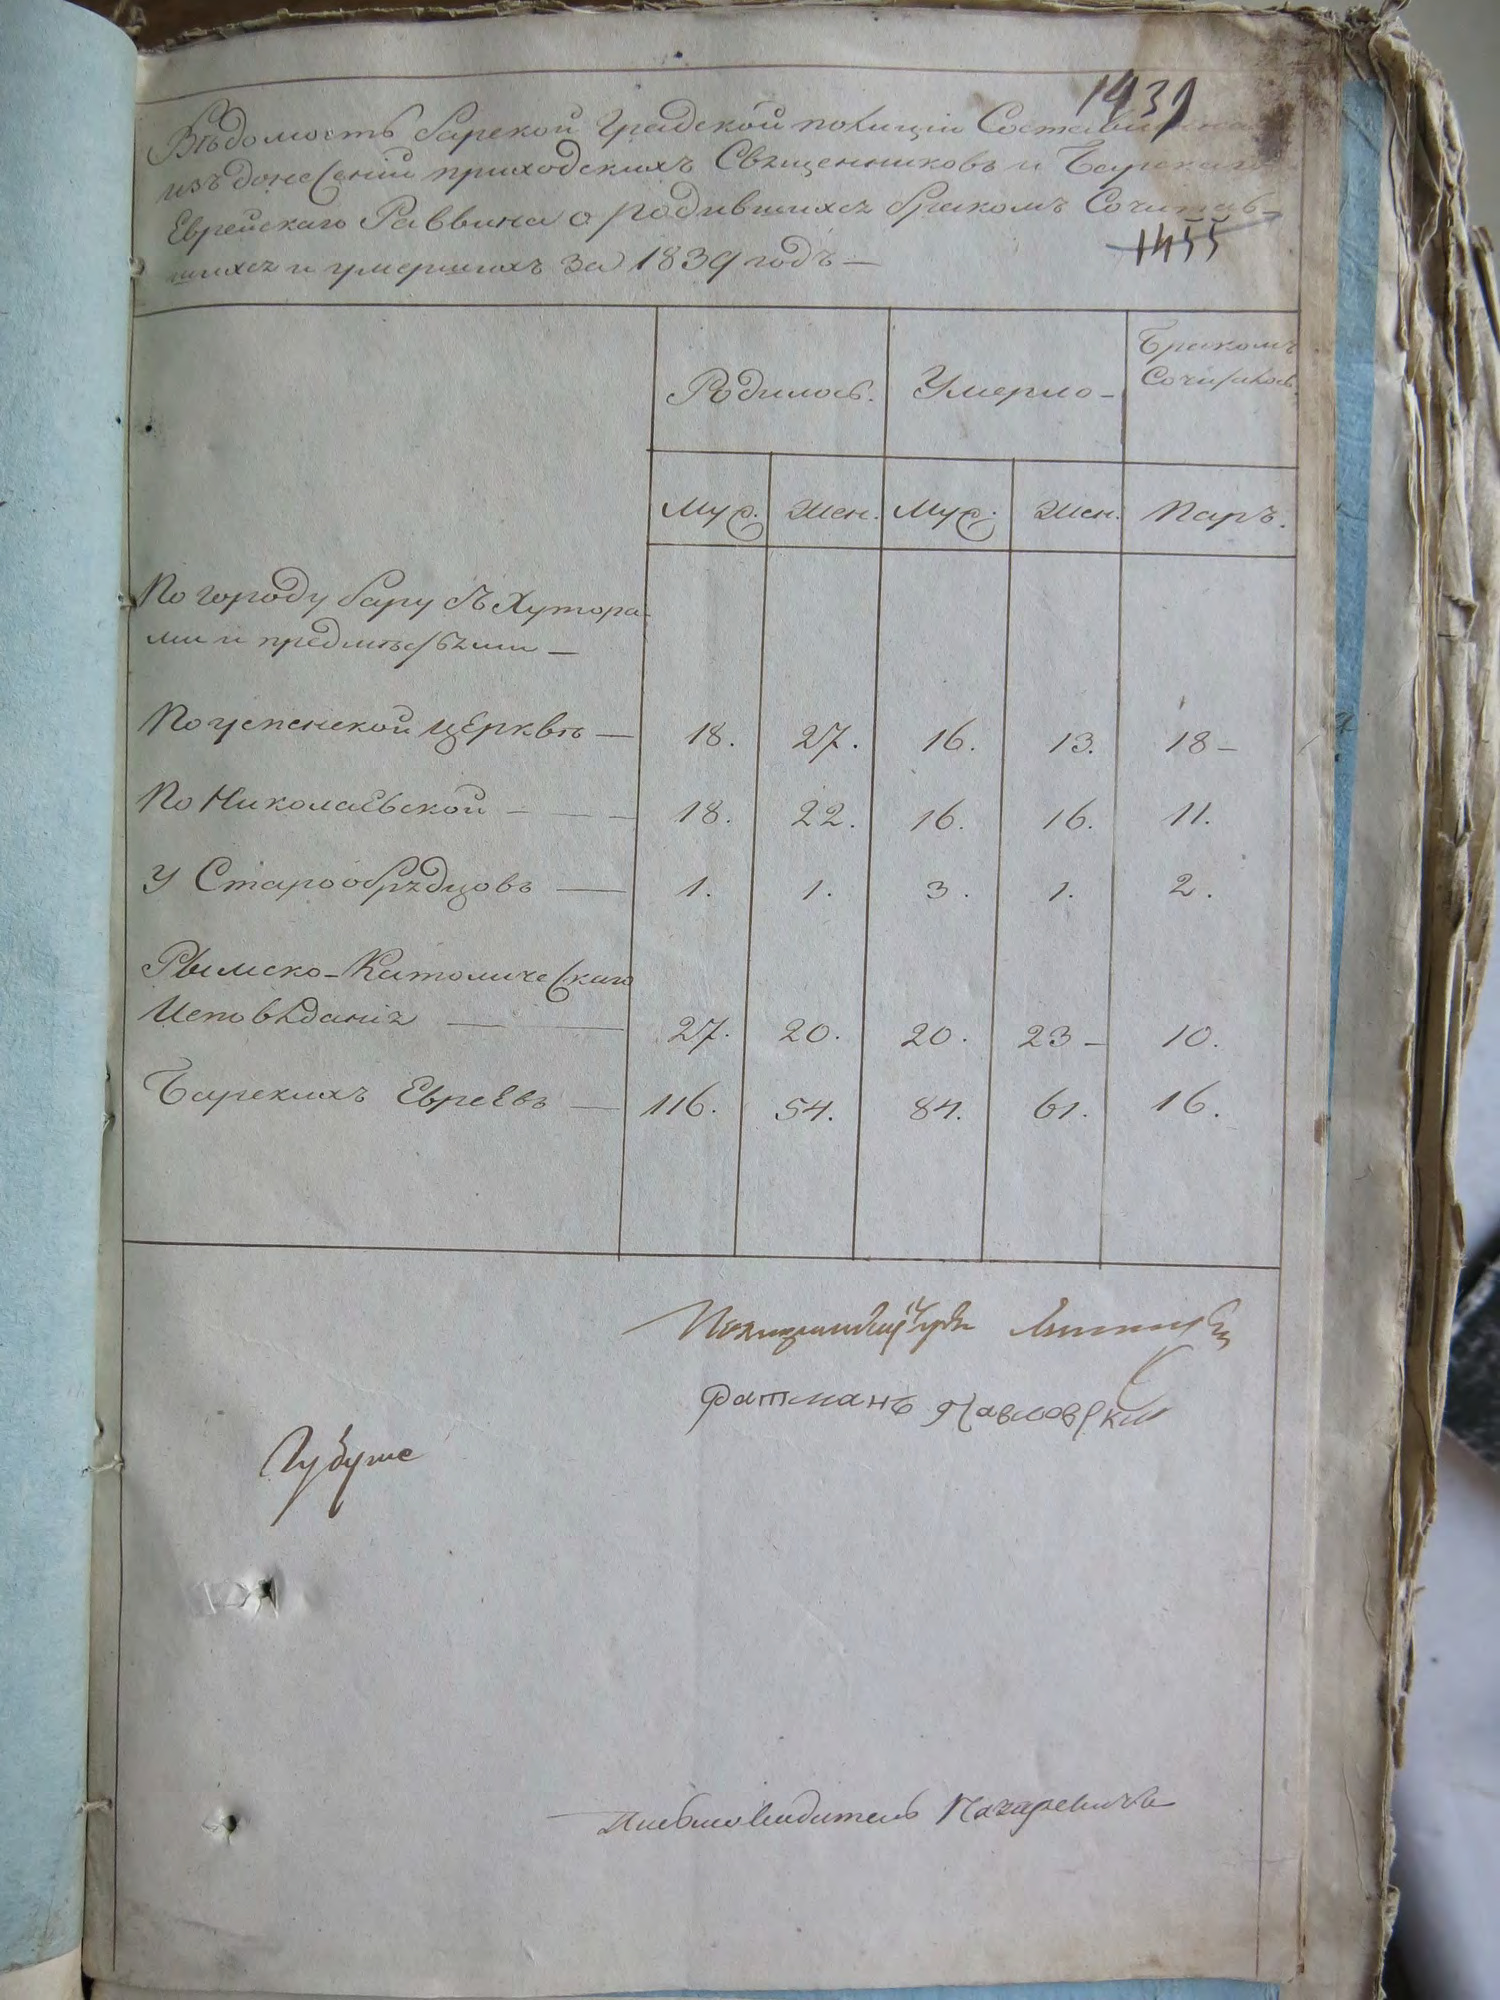 1431
Вѣдомость барской Градской полиціи Составленная
изъ донесеній приходскихъ Священниковъ и Барскаго
Еврейскаго Раввина о родившихся бракомъ Сочитав-
шихся и умершихъ за 1839 годъ —
1455
Родилось. Умерло — Бракомъ
Сочиталось.
Муж. Жен. Муж. Жен. Паръ.
По городу бару съ Хутора-
ми и предмѣстьями —
По успенской церквѣ — 18. 27. 16. 13. 18 —
По Николаевской — — — 18. 22. 16. 16. 11.
У Старообрядцовъ — 1. 1. 3. 1. 2.
Рымско-Католическаго
Исповѣданія — — 27. 20. 20. 23 — 10.
Барскихъ Евреевъ — 116. 54. 84. 61. 16.
Ратманъ Павловскій
Письмоводитель